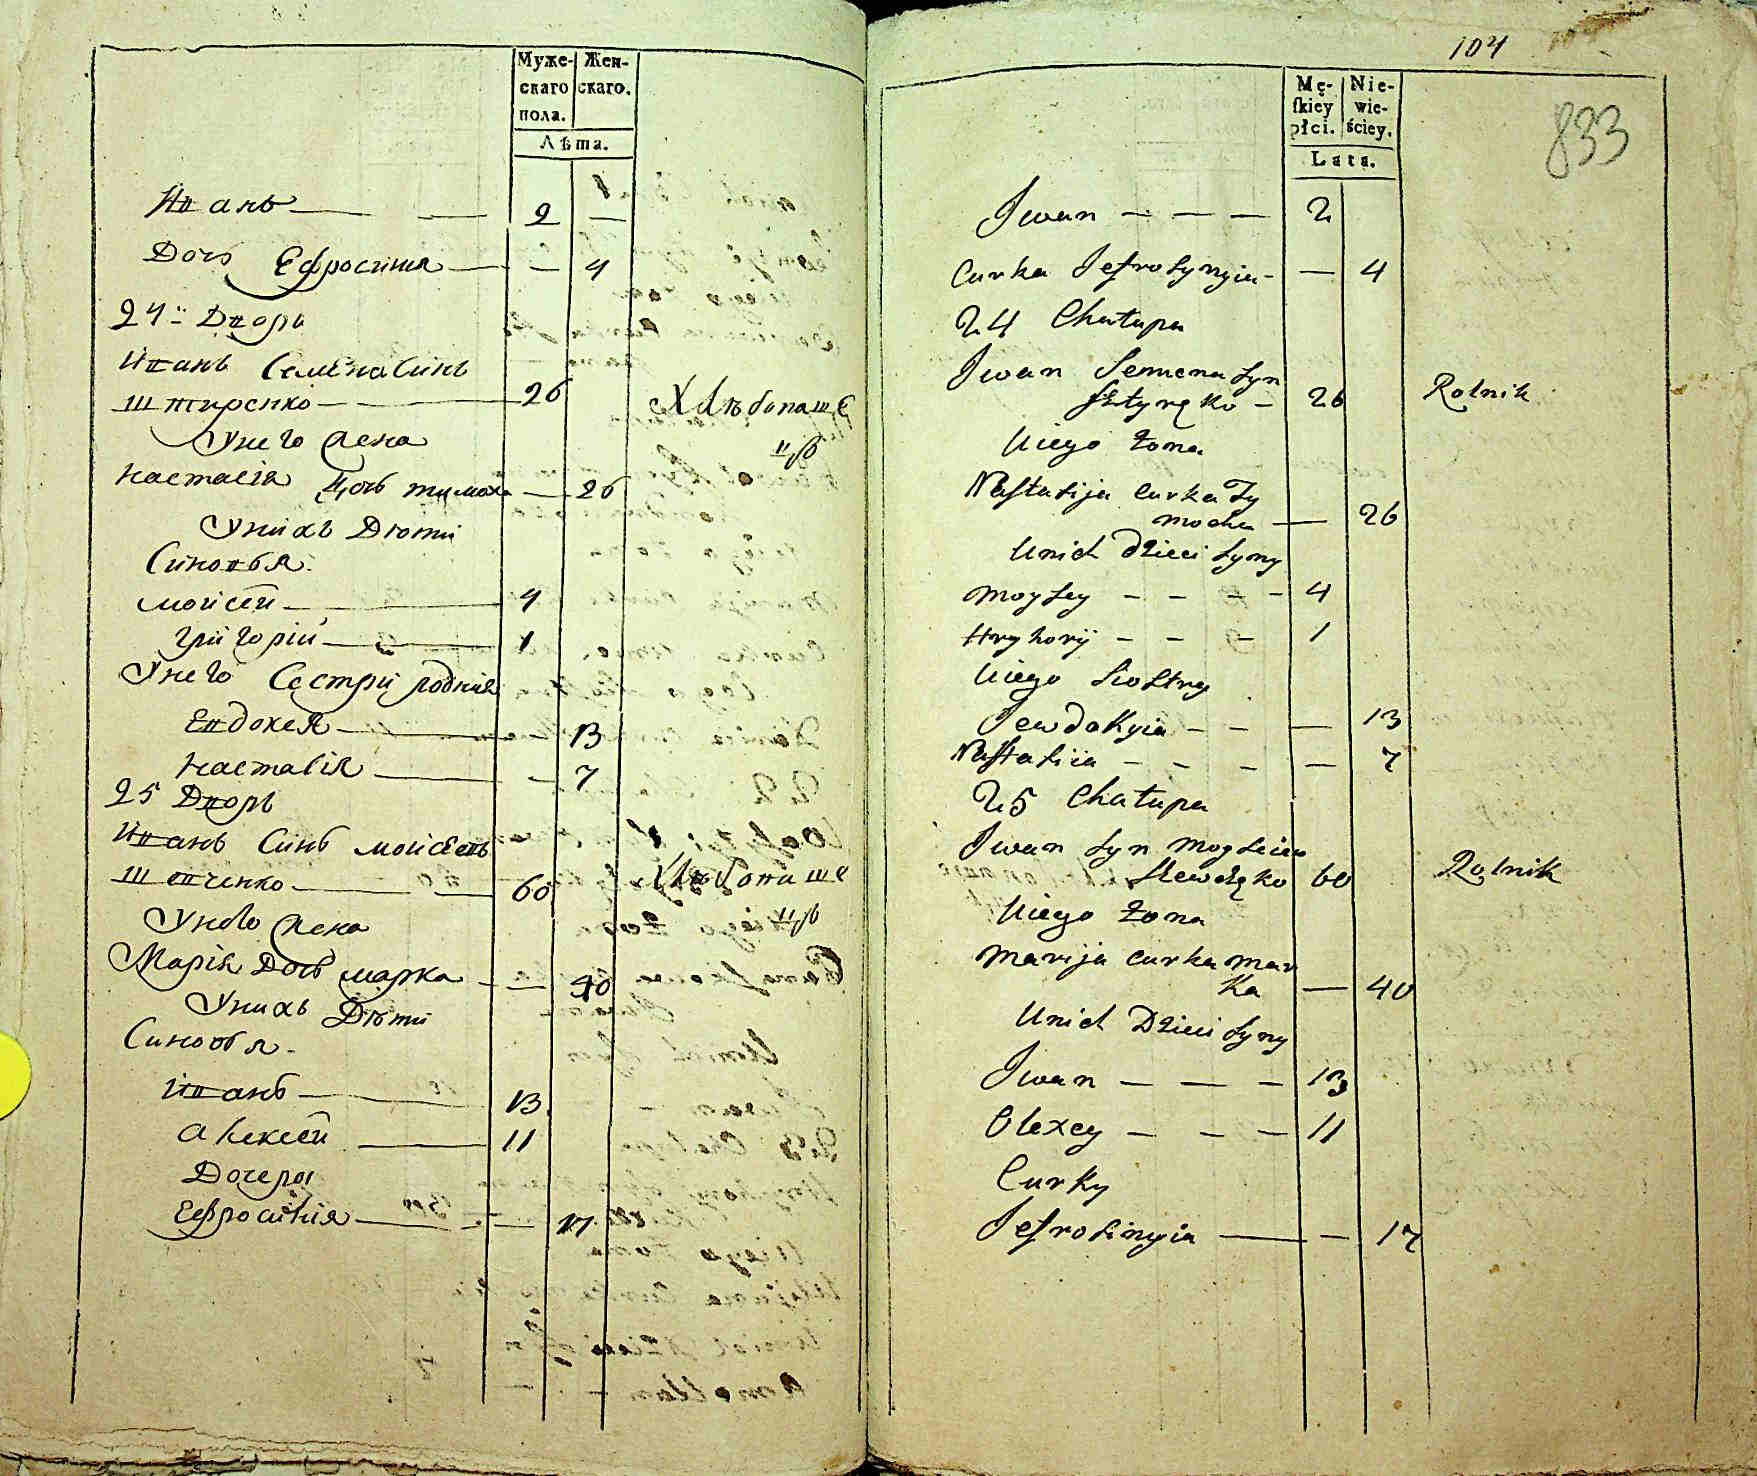 Муже- Жен-
скаго скаго.
пола.
Лѣта.
Иванъ — — 2 —
Дочъ Ефросиния — — 4
24й Дворъ
Иванъ Семена Синъ
Штиренко — 26 Хлѣбопаше
цъ
Унего Жена
Настасія Дочь тимоха — 26
Унихъ Дѣти
Синовья.
Моисей — 4
Григорій — 1
Унего Сестри родния
Евдокея — — 13
Настасія — — 7
25 Дворъ
Иванъ Синъ Моисеевъ
Шевченко — — 60 Хлѣбопаше
цъ
Унево Жена
Марія Дочь марка — — 40
Унихъ Дѣти
Синовья.
Иванъ — 13
Алексей — 11
Дочери
Ефросиния — — 17
104
833
Mę- Nie-
skiey wie-
płci. ściey.
Lata.
Iwan — — — 2
Curka Iefrosynyia — — 4
24 Chatupa
Iwan Semena Syn
Sztyręko — 26 Rolnik
Uiego Żona
Nastasija curka Ty
mocha — 26
Unich Dzieci Syny
Moysey — — — — 4
Hryhorij — — — 1
Uiego Siostry
Iewdokyia — — — 13
Nastasiia — — — — 7
25 Chatupa
Iwan Syn Moysieia
Szewczęko 60 Rolnik
Uiego Żona
Marija curka Mar
ka — 40
Unich Dzieci Syny
Iwan — — — 13
Olexey — — — 11
Curky
Iefrosinyia — — 17